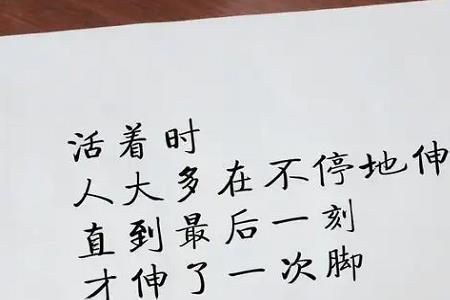 活着时
人大多在不停地伸
直到最后一刻
才伸了一次脚